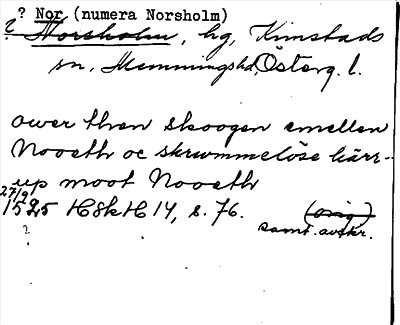 ? Nor (numera Norsholm)
? Norsholm, hg, Kimstads
sn, Memmings hd, Österg. l.
ower then skoogen emellen
Nooeth oc skrwmmelöse kärr-
up moot Nooeth
27/9
1525 HSkH 14, s. 76. (orig)
? samt. avskr.